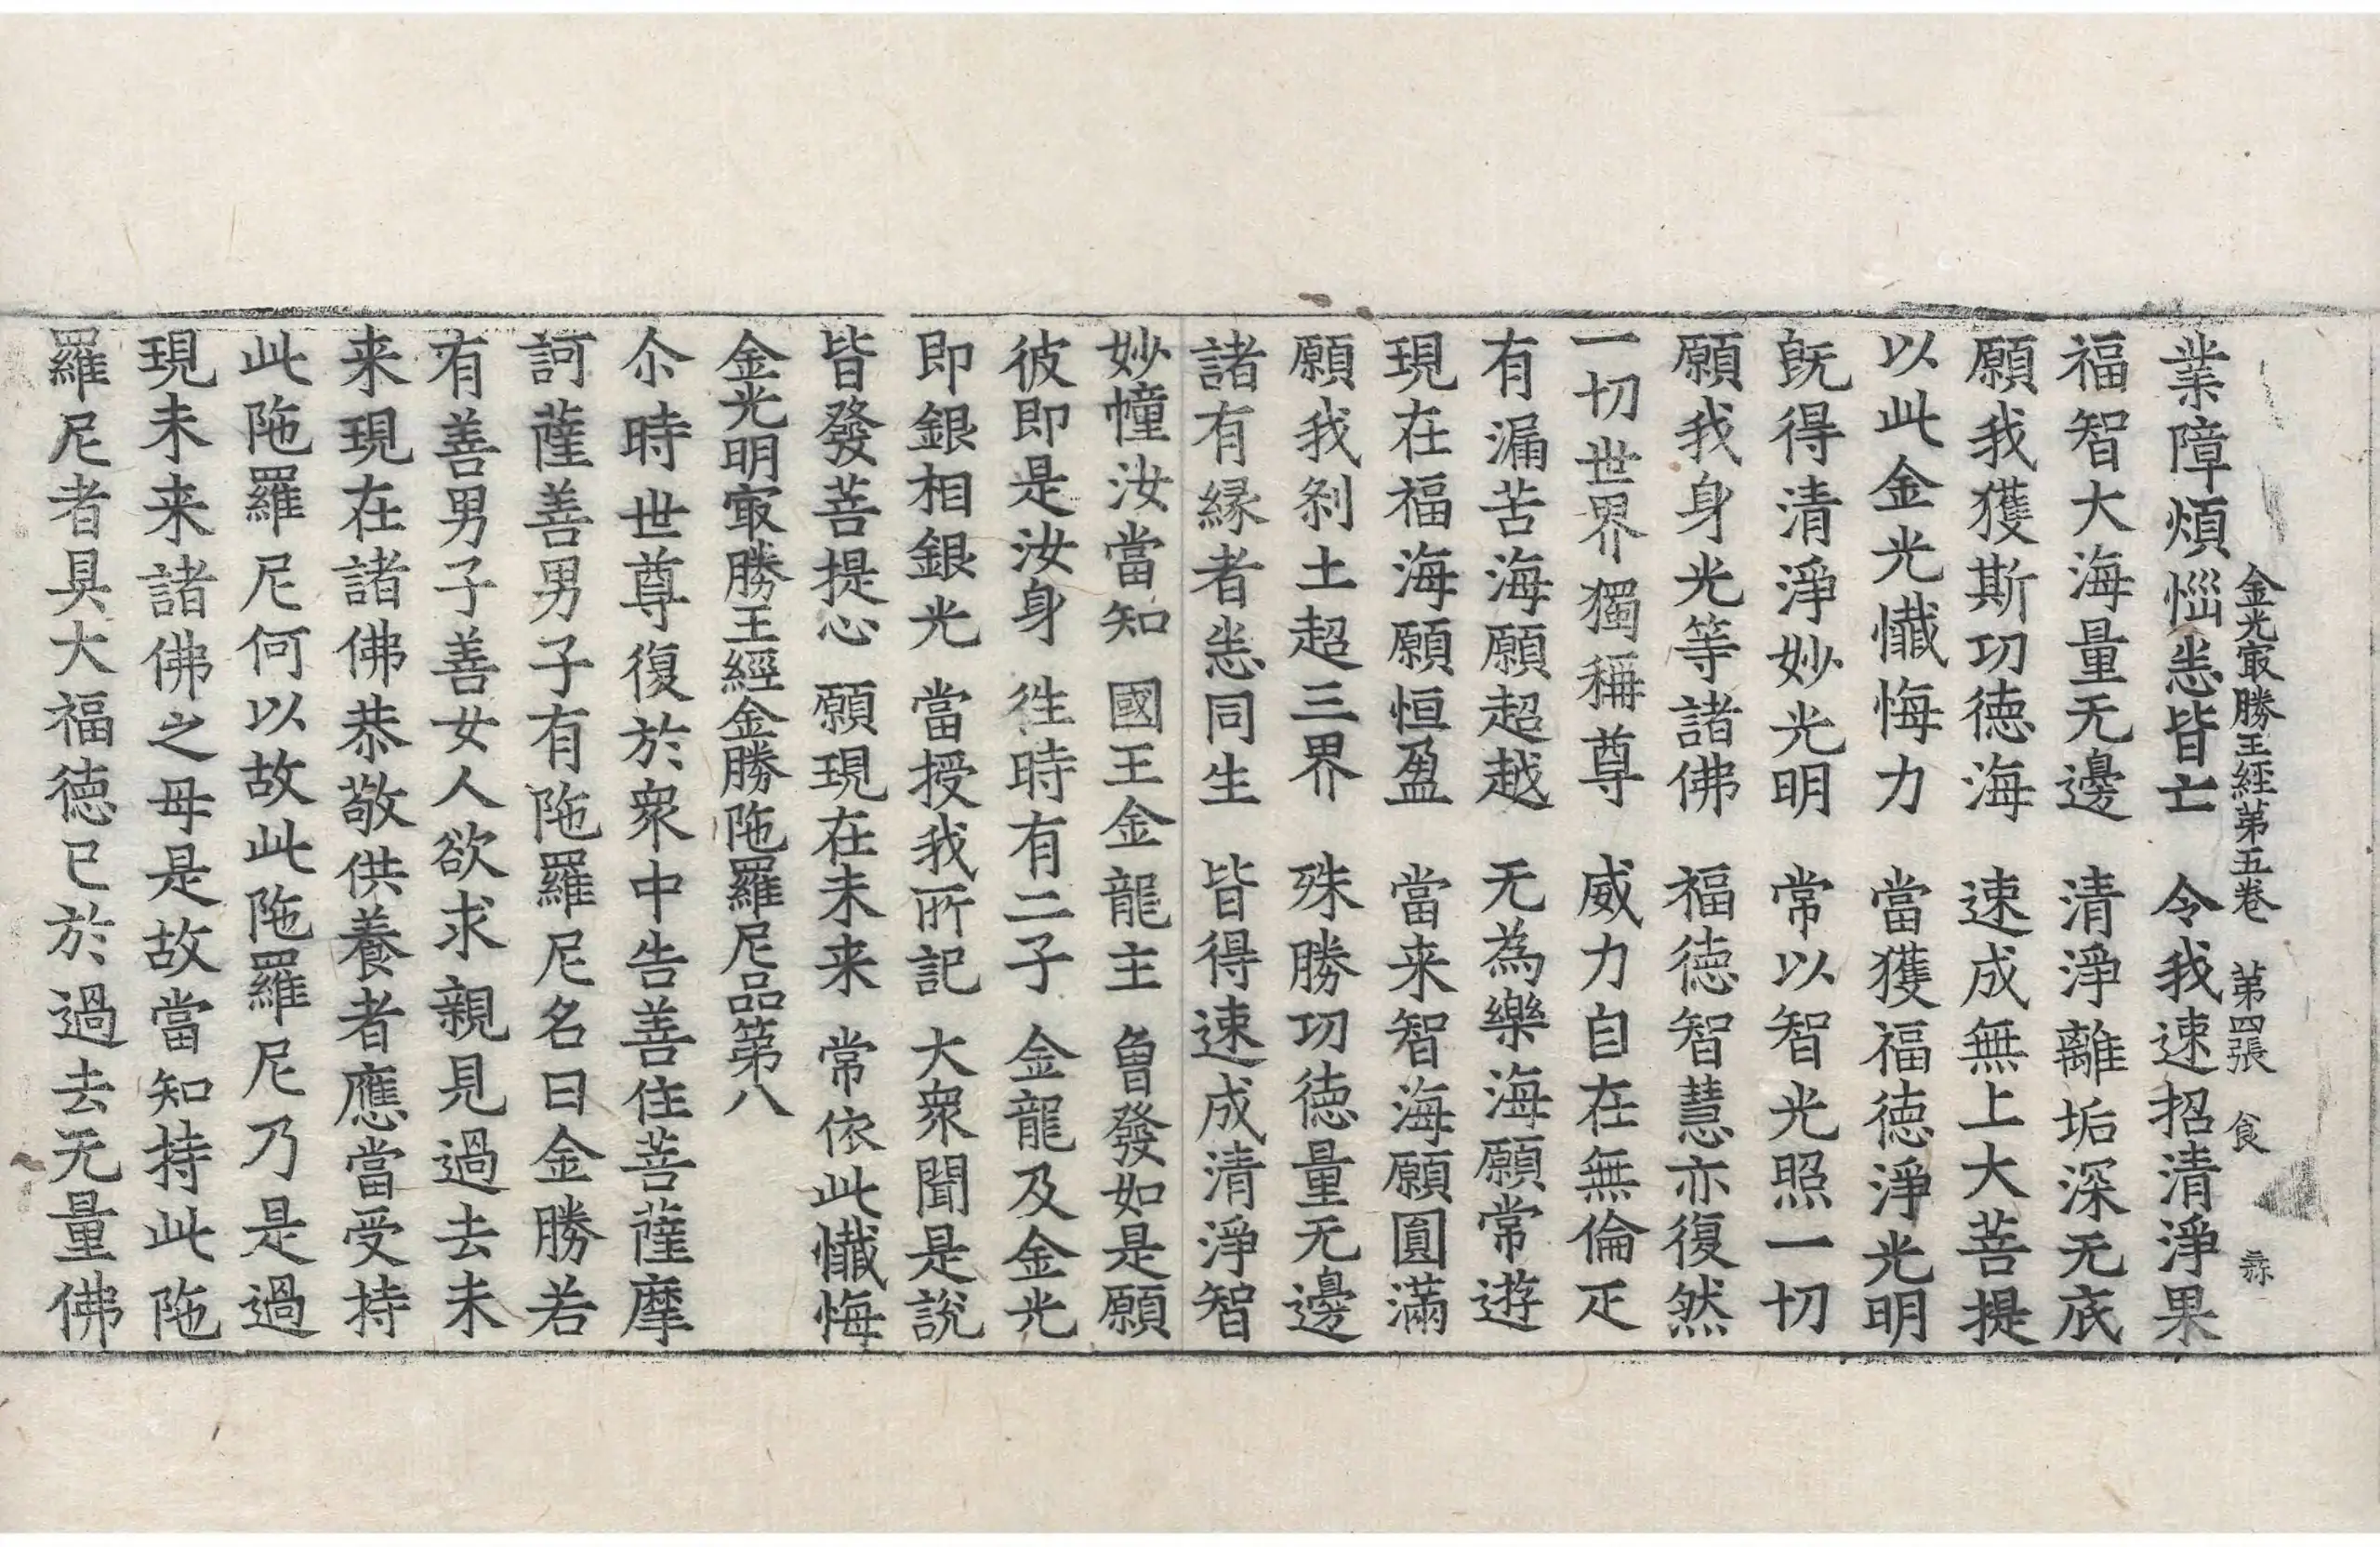 金光㝡勝王經第五卷　第四張　食
業障煩惱悉皆亡　令我速招清淨果
福智大海量无邊　清淨離垢深无底
願我獲斯功德海　速成無上大菩提
以此金光懺悔力　當獲福德淨光明
既得清淨妙光明　常以智光照一切
願我身光等諸佛　福德智慧亦復然
一切世界獨稱尊　威力自在無倫疋
有漏苦海願超越　无為樂海願常遊
現在福海願恒盈　當来智海願圓滿
願我刹土超三界　殊勝功德量无邊
諸有緣者悉同生　皆得速成清淨智
妙幢汝當知　國王金龍主　曾發如是願
彼即是汝身　往時有二子　金龍及金光
即銀相銀光　當授我所記　大衆聞是說
皆發菩提心　願現在未来　常依此懺悔
金光明㝡勝王經金勝陁羅尼品第八
尒時世尊復於衆中告善住菩薩摩
訶薩善男子有陁羅尼名曰金勝若
有善男子善女人欲求親見過去未
来現在諸佛恭敬供養者應當受持
此陁羅尼何以故此陁羅尼乃是過
現未来諸佛之母是故當知持此陁
羅尼者具大福德已於過去无量佛